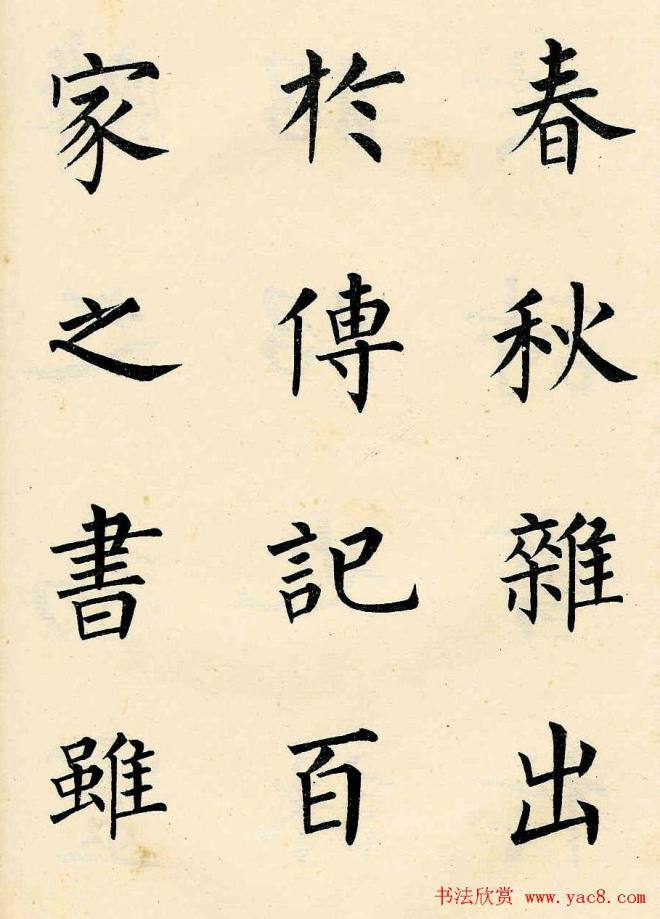 春秋雜出
於傳記百
家之書雖
书法欣赏 www.yac8.com